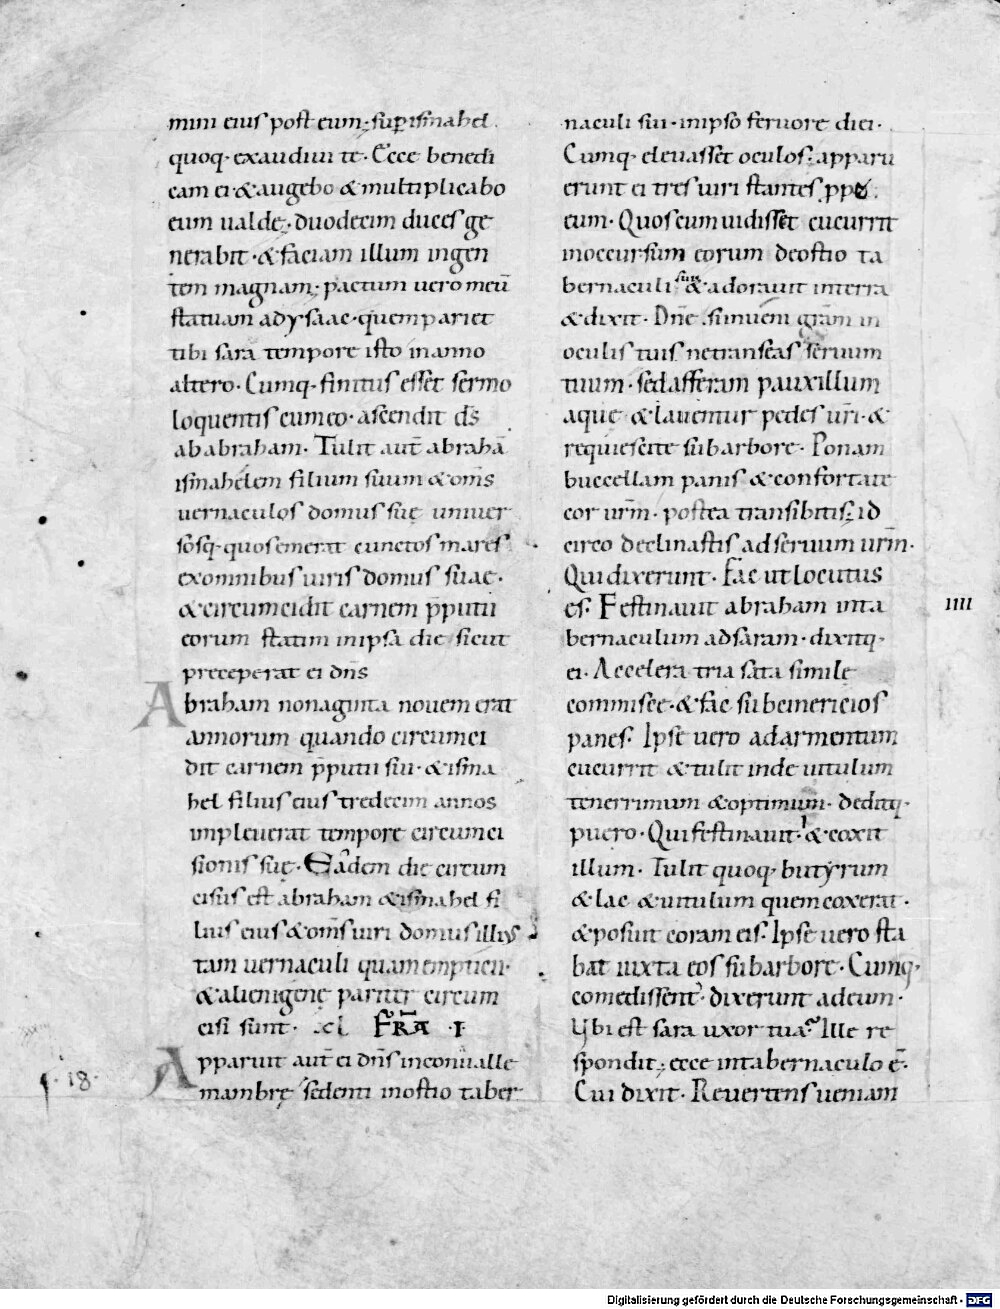 mini eius post eum; sup ismahel
quoq· exaudiui te· Ecce benedi
cam ei & augebo & multiplicabo
eum ualde· duodecim duces ge
nerabit· & faciam illum ingen
tem magnam; pactum uero meū
statuam ad ysaac· quem pariet
tibi sara tempore isto in anno
altero· Cumq· finitus esset sermo
loquentis cum eo· ascendit ds̄
ab abraham· Tulit aut̄ abrahā
ismahelem filium suum & om̄s
uernaculos domus suę uniuer
sosq· quos emerat cunctos mares
ex omnibus uiris domus suae·
& circumcidit carnem p̄putii
eorum statim in ipsa die sicut
preceperat ei dn̄s
Abraham nonaginta nouem erat
annorum quando circumci
dit carnem p̄putii sui· & isma
hel filius eius tredecim annos
impleuerat tempore circumci
sionis suę· Eadem die circum
cisus est abraham & ismahel fi
lius eius & om̄s uiri domus illius
tam uernaculi quam empticii·
& alienigenę pariter circum
cisi sunt· xl FR̄A · I·
·18·
Apparuit aut̄ ei dn̄s in conualle
mambrę sedenti in ostio taber
naculi sui· in ipso feruore diei·
Cumq· eleuasset oculos· apparu
erunt ei tres uiri stantes ꝓpe
eum· Quos cum uidisset cucurrit
in occursum eorum de ostio ta
bernaculi sui & adorauit in terra
& dixit· Dn̄e si inueni grām in
oculis tuis ne transeas seruum
tuum· sed afferam pauxillum
aquę & lauentur pedes ur̄i· &
requiescite sub arbore· Ponam
buccellam panis & confortate
cor ur̄m· postea transibitis; id
circo declinastis ad seruum ur̄m·
Qui dixerunt· Fac ut locutus
es· Festinauit abraham in ta
IIII
bernaculum ad saram· dixitq·
ei· Accelera tria sata simile
commisce· & fac subcinericios
panes· Ipse uero ad armentum
cucurrit & tulit inde uitulum
tenerrimum & optimum· deditq·
puero· Qui festinauit· & coxit
illum· Tulit quoq· butyrum
& lac & uitulum quem coxerat·
& posuit coram eis· Ipse uero sta
bat iuxta eos sub arbore· Cumq·
comedissent· dixerunt ad eum·
Ubi est sara uxor tua? Ille re
spondit; ecce in tabernaculo ē·
Cui dixit· Reuertens ueniam
Digitalisierung gefördert durch die Deutsche Forschungsgemeinschaft - DFG